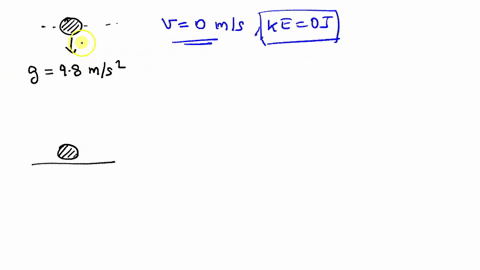 v = 0 m/s, KE = 0J
g = 9.8 m/s²